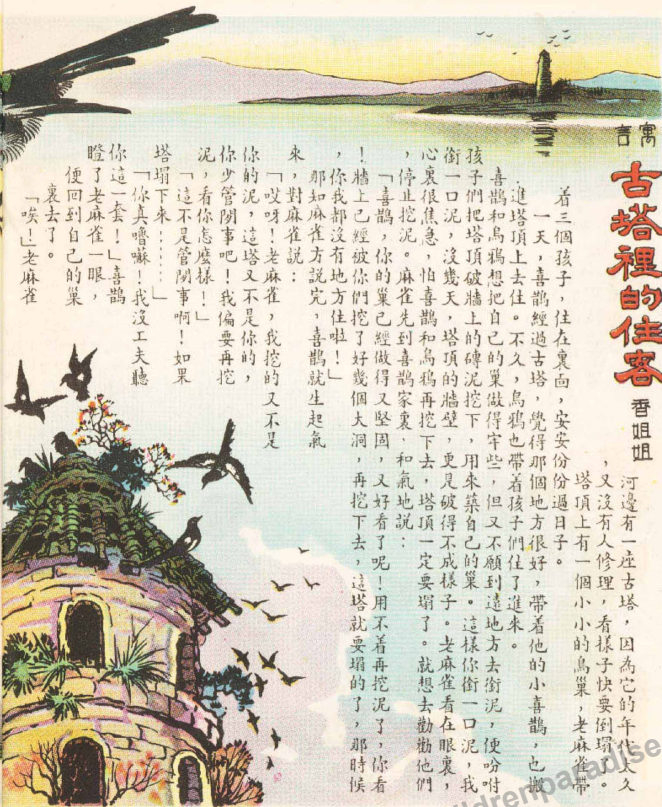 寓言
古塔裡的住客
香姐姐
河邊有一座古塔，因為它的年代太久
，又沒有人修理，看樣子快要倒塌了。
塔頂上有一個小小的鳥巢，老麻雀帶
着三個孩子，住在裏面，安安份份過日子。
一天，喜鵲經過古塔，覺得那個地方很好，帶着他的小喜鵲，也搬
進塔頂上去住。不久，烏鴉也帶着孩子們住了進來。
喜鵲和烏鴉想把自己的巢做得牢些，但又不願到遠地方去銜泥，便吩咐
孩子們把塔頂破牆上的磚泥挖下，用來築自己的巢。這樣你銜一口泥，我
銜一口泥，沒幾天，塔頂的牆壁，更是破得不成樣子。老麻雀看在眼裏，
心裏很焦急，怕喜鵲和烏鴉再挖下去，塔頂一定要塌了。就想去勸勸他們
，停止挖泥。麻雀先到喜鵲家裏，和氣地説：
「喜鵲，你的巢已經做得又堅固，又好看了呢！用不着再挖泥了，你看
！牆上已經被你們挖了好幾個大洞，再挖下去，這塔就要塌的了，那時候
，你我都沒有地方住啦！」
那知麻雀方説完，喜鵲就生起氣
來，對麻雀説：
「哎呀！老麻雀，我挖的又不是
你的泥，這塔又不是你的，
你少管閒事吧！我偏要再挖
泥，看你怎麼樣！」
「這不是管閒事啊！如果
塔塌下來……」
「你真嚕囌！我沒工夫聽
你這一套！」喜鵲
瞪了老麻雀一眼，
便回到自己的巢
裏去了。
「唉！」老麻雀